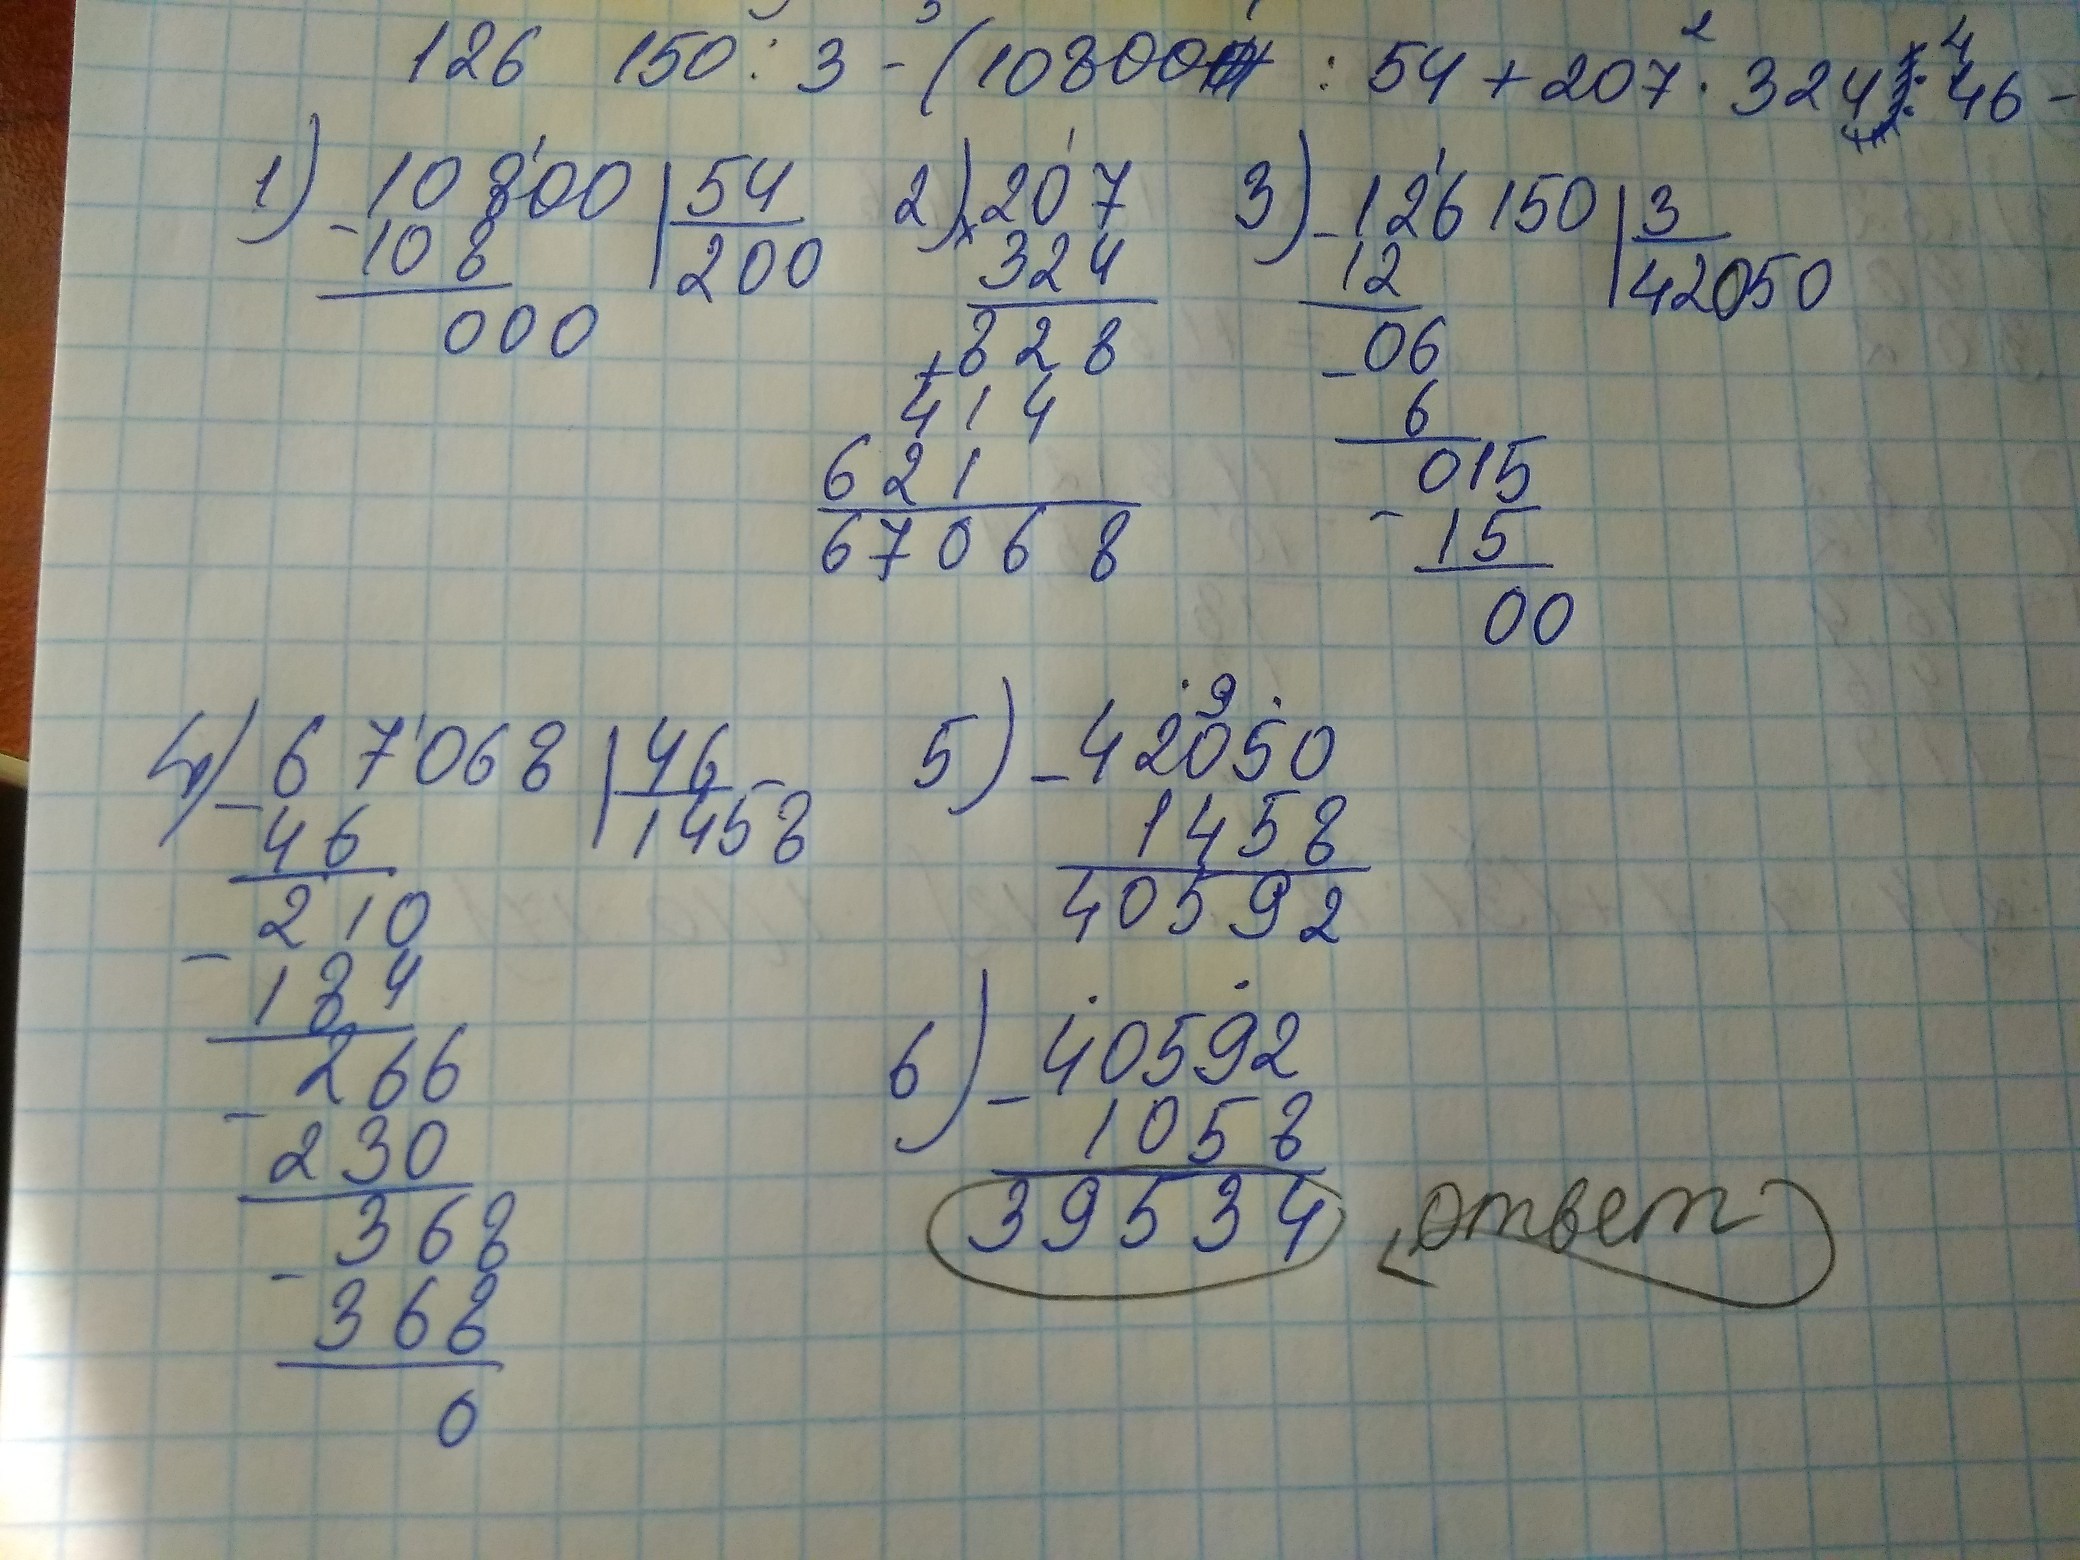 126 150 : 3 - (10800 : 54 + 207 · 324 : 46 -
1) 10800 | 54
- 108 200
000
2) 207
× 324
828
+ 414
621
67068
3) 126150 | 3
- 12 42050
06
- 6
015
- 15
00
4) 67068 | 46
- 46 1458
210
- 184
266
- 230
368
- 368
0
5) - 42050
1458
40592
6) - 40592
1058
39534 ответ